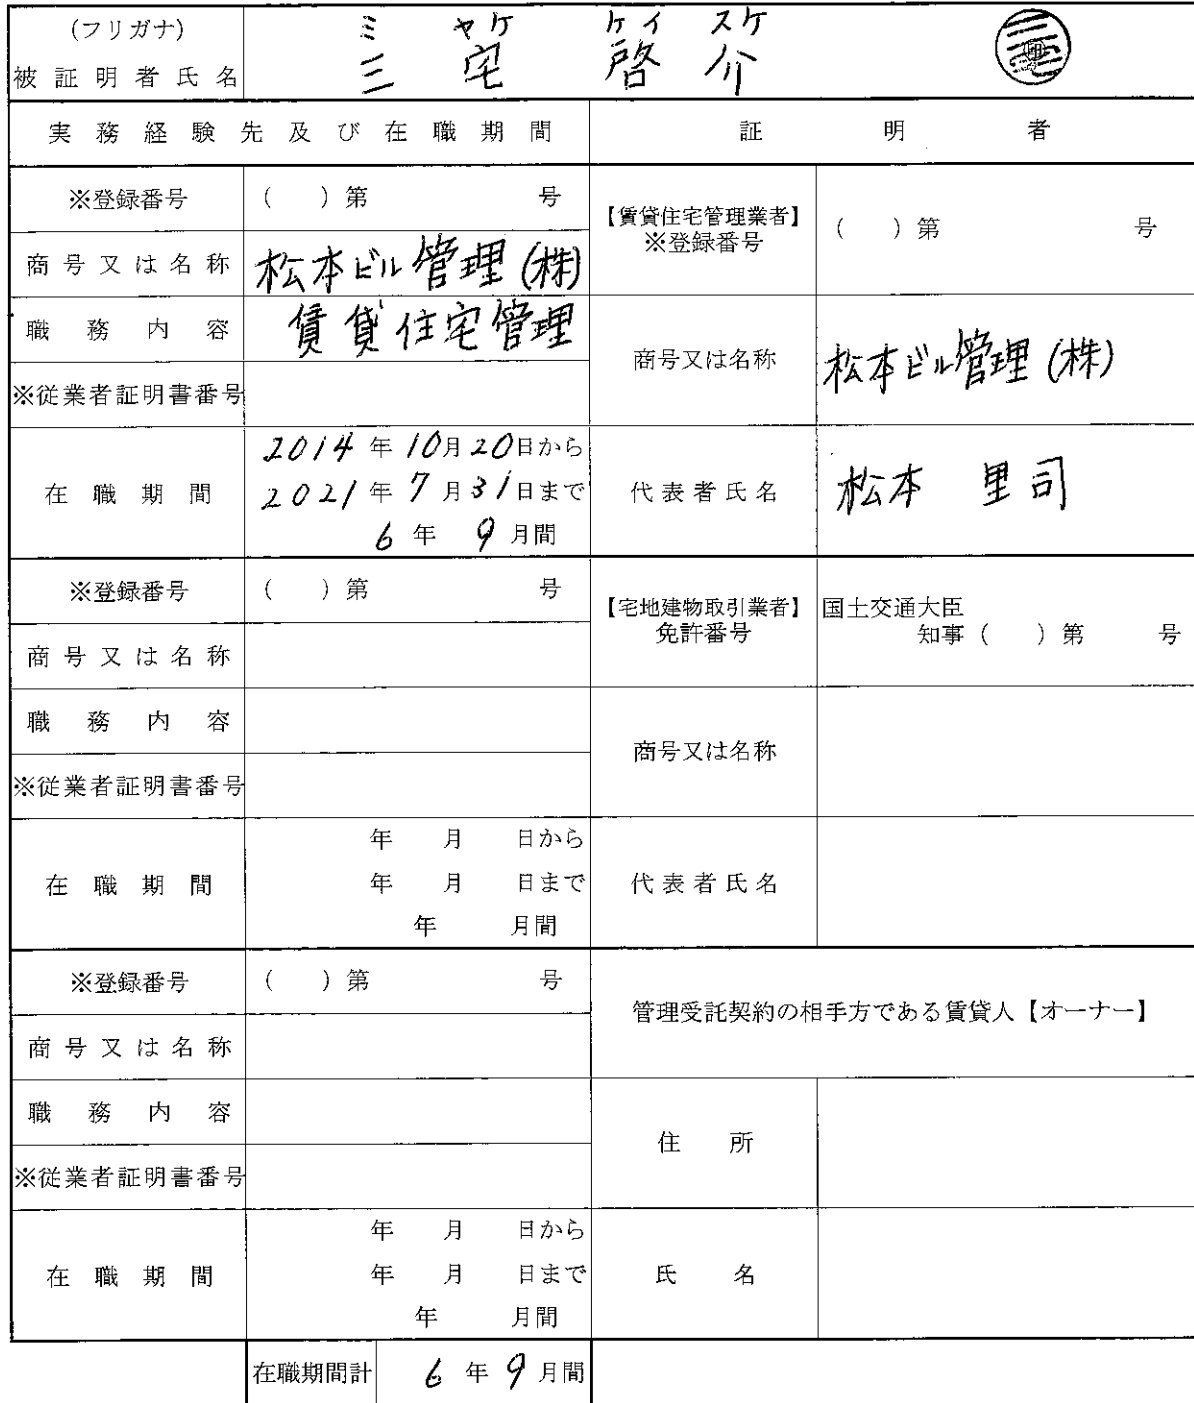 (フリガナ) ミヤケ ケイスケ
被証明者氏名 三宅 啓介
実務経験先及び在職期間 証明者
※登録番号 ( )第 号
【賃貸住宅管理業者】
※登録番号 ( )第 号
商号又は名称 松本ビル管理(株)
職務内容 賃貸住宅管理
商号又は名称 松本ビル管理(株)
※従業者証明書番号
在職期間
2014年10月20日から
2021年7月31日まで
6年 9月間
代表者氏名 松本 里司
※登録番号 ( )第 号
【宅地建物取引業者】
免許番号
国土交通大臣
知事( )第 号
商号又は名称
職務内容
商号又は名称
※従業者証明書番号
在職期間
年 月 日から
年 月 日まで
年 月間
代表者氏名
※登録番号 ( )第 号
管理受託契約の相手方である賃貸人【オーナー】
商号又は名称
職務内容
住所
※従業者証明書番号
在職期間
年 月 日から
年 月 日まで
年 月間
氏名
在職期間計 6年9月間